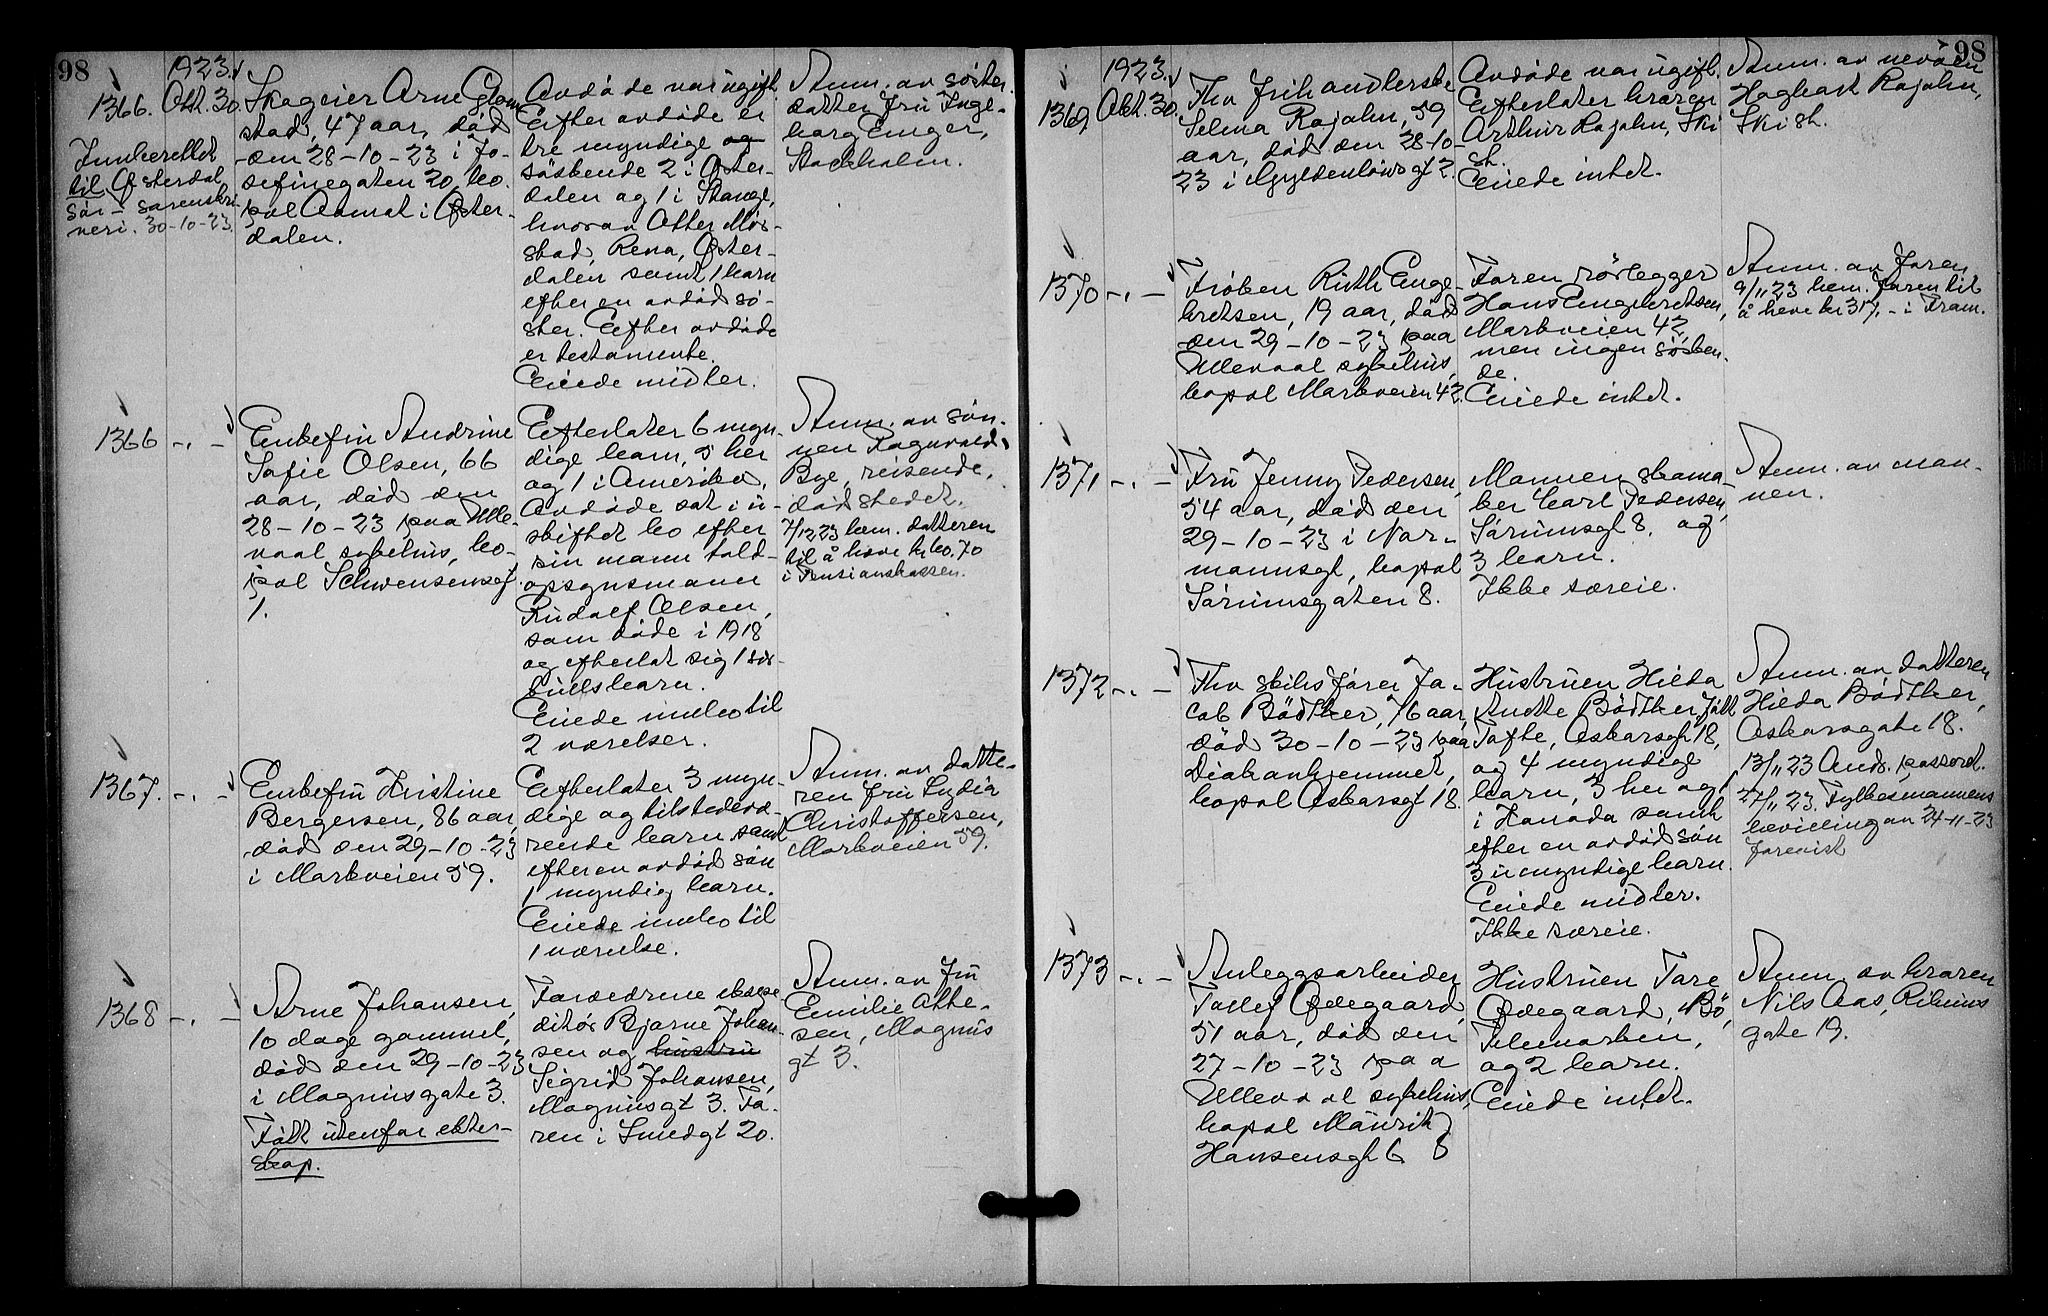 98
1923.
1366. Okt. 30.
Innberettet
til Østerdal,
Sør-sorenskri-
veri. 30-10-23.
Skogeier Arne Glom
stad, 47 aar, død
den 28-10-23 i Jo-
sefinegaten 20, bo-
pæl Aamot i Øster-
dalen.
Avdøde var ugift.
Efter avdøde er
tre myndige og
søskende 2 i Øster-
dalen og 1 i Stange,
hvorav Otter Mør-
stad, Rena, Øster-
dalen samt 1 barn
efter en avdød sø-
ster. Efter avdøde
er testamente.
Eiede midler.
Anm. av søster
datter fru Inge-
borg Enger,
Stockholm.
1366 -.-
Enkefru Andrine
Sofie Olsen, 66
aar, død den
28-10-23 paa Ulle-
vaal sykehus, bo-
pæl Schwensensgt.
1.
Efterlater 6 myn-
dige barn, 5 her
og 1 i Amerika.
Avdøde sat i u-
skiftet bo efter
sin mann told-
opsynsmann
Rudolf Olsen,
som døde i 1918
og efterlot sig 1 sær-
kuldsbarn.
Eiede innbo til
2 værelser.
Anm. av søn-
nen Ragnvald
Bye, reisende,
dødsstedet.
7/12 23 bem. datteren
til å heve kr 60,70
i Pensjonskassen.
1367. -.-
Enkefru Kristine
Bergersen, 86 aar,
død den 29-10-23
i Markveien 59.
Efterlater 3 myn-
dige og tilstedevæ-
rende barn samt
efter en avdød søn
1 myndig barn.
Eiede innbo til
1 værelse.
Anm. av datte-
ren fru Lydia
Christoffersen,
Markveien 59.
1368 -.-
Arne Johansen,
10 dage gammel,
død den 29-10-23
i Magnusgate 3.
Født utenfor ekter-
skap.
Forældrene ekspe
ditør Bjarne Johan-
sen og hustru
Sigrid Johansen,
Magnusgt 3. Fa-
ren i Smedgt 20.
Anm. av fru
Emilie Otte-
sen, Magnus
gt 3.
98
1923.
1369 Okt. 30.
Fhv frihandlerske
Selma Rojahn, 59
aar, død den 28-10-
23 i Gyldenløvsgt 2.
Avdøde var ugift.
Efterlater broren
Arthur Rojahn, Ski
st.
Eiede intet.
Anm. av nevøen
Hagbart Rojahn,
Ski st.
1370 -.-
Frøken Ruth Enge-
bretsen, 19 aar, død
den 29-10-23 paa
Ullevaal sykehus,
bopæl Markveien 42.
Faren rørlegger
Hans Engebretsen,
Markveien 42,
men ingen søsken-
de.
Eiede intet.
Anm. av faren
9/11 23 bem. faren til
å heve kr 317,- i Fram.
1371 -.-
Fru Jenny Pedersen,
54 aar, død den
29-10-23 i Nor-
mannsgt, bopæl
Sørumsgaten 8.
Mannen skoma-
ker Carl Pedersen,
Sørumsgt 8, og
3 barn.
Ikke særeie.
Anm. av man-
nen.
1372 -.-
Fhv skibsfører Ja-
cob Bødtker, 76 aar,
død 30-10-23 paa
Diakonhjemmet,
bopæl Oskarsgt 18.
Hustruen Hilda
Anette Bødtker født
Tofte, Oskarsgt 18,
og 4 myndige
barn, 3 her og 1
i Kanada samt
efter en avdød søn
3 umyndige barn.
Eiede midler.
Ikke særeie.
Anm. av datteren
Hilda Bødtker,
Oskarsgate 18.
13/11 23 Ands. passord.
27/11 23. Fylkesmannens
bevilling av 24-11-23
forevist
1373 -.-
Anleggsarbeider
Tollef Ødegaard,
51 aar, død den
27-10-23 paa
Ullevaal sykehus,
bopæl Maurits
Hansensgt 6
Hustruen Tore
Ødegaard, Bø,
Telemarken,
og 2 barn.
Eiede intet.
Anm. av broren
Nils Aas, Rihus
gate 19.